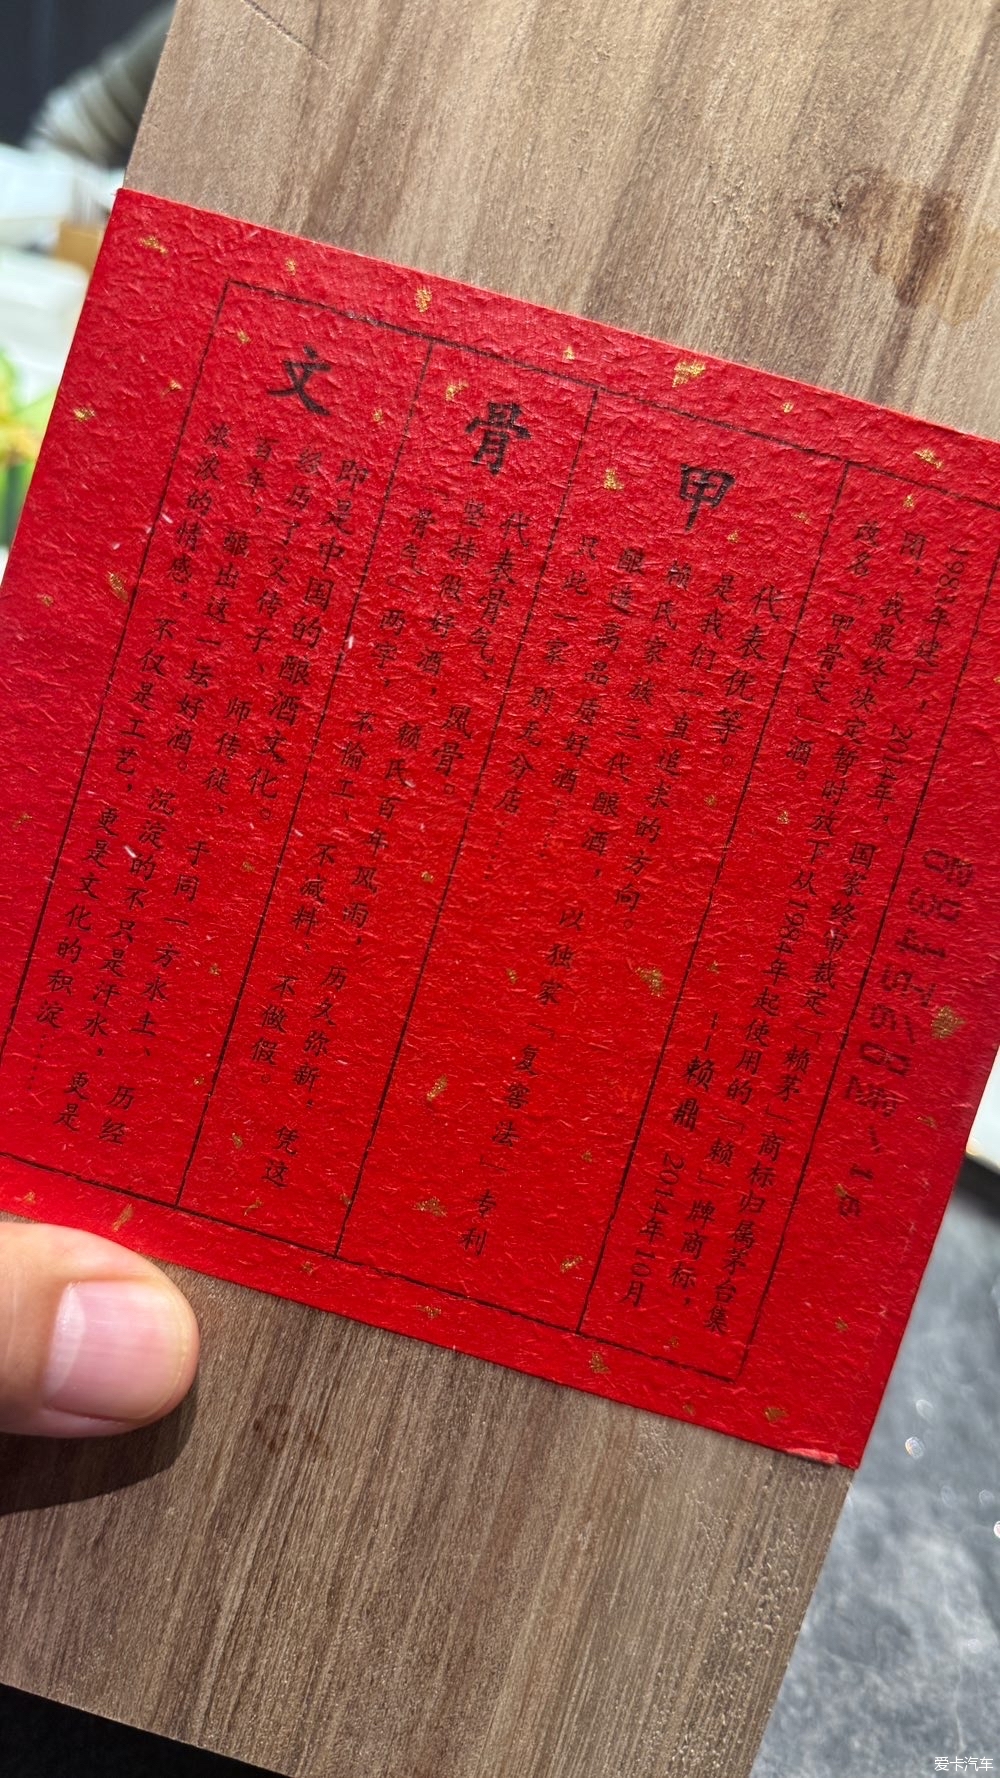 1983年建厂，2014年，国家终审裁定「赖茅」商标归属茅台集
团，我最终决定暂时放下从1984年起使用的「赖」牌商标，
改名「甲骨文」酒。 ——赖鼎 2014年10月
甲
代表优等。
是我们一直追求的方向。
赖氏家族三代酿酒，以独家「复窖法」专利
酿造高品质好酒，
只此一家 别无分店……
骨
代表骨气、风骨。
坚持做好酒，赖氏百年风雨，历久弥新。凭这
「骨气」两字，不偷工、不减料、不做假。
文
即是中国的酿酒文化。
经历了父传子、师传徒，于同一方水土、历经
百年，酿出这一坛好酒。沉淀的不只是汗水，更是
浓浓的情感，不仅是工艺，更是文化的积淀……
爱卡汽车